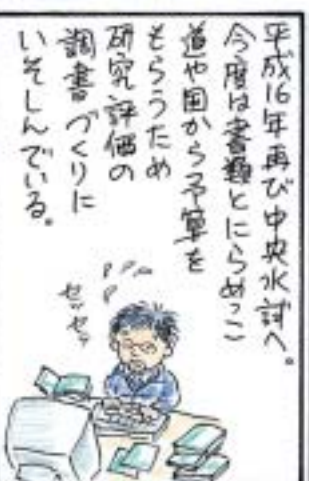 平成16年再び中央水試へ。
今度は書類とにらめっこ
道や国から予算を
もらうため
研究評価の
調書づくりに
いそしんでいる。
セッセッ